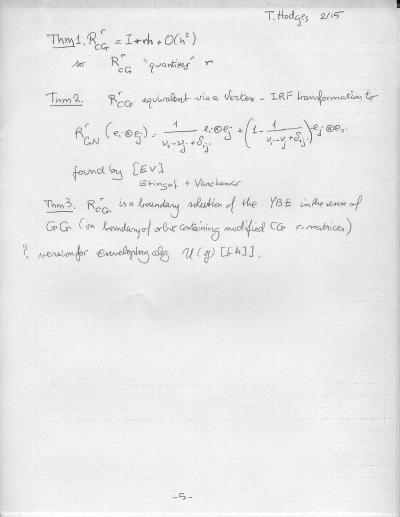 T. Hodges 2/15
Thm 1. R^r_CG = I + rh + O(h²)
so R^r_CG "quantizes" r
Thm 2. R^r_CG equivalent via a Vertex-IRF transformation to
R^r_GN (e_i⊗e_j) = 1/(ν_i-ν_j+δ_ij) e_i⊗e_j + (1 - 1/(ν_i-ν_j+δ_ij)) e_j⊗e_i
found by [EV]
Etingof + Varchenko
Thm 3. R^r_CG is a boundary solution of the YBE in the sense of
GG (on boundary of orbit containing modified CG r-matrices)
?. version for enveloping alg U(g)[[h]].
-5-